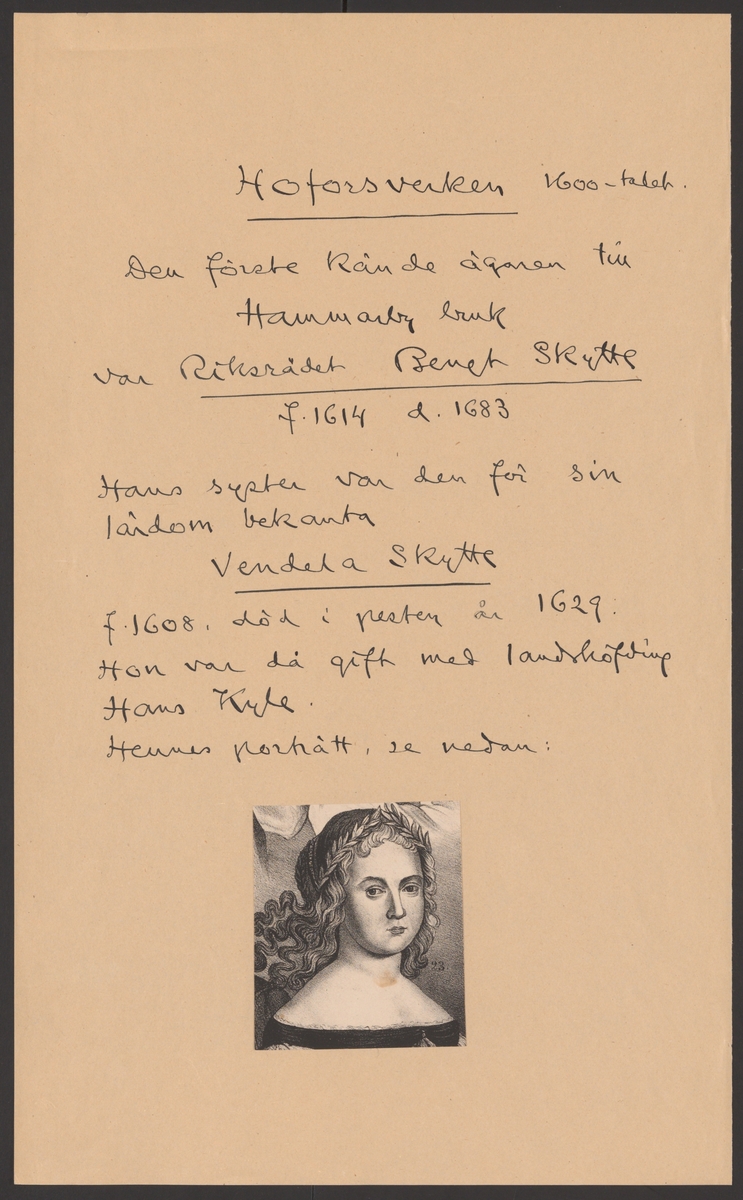 Hoforsverken 1600-talet.
Den förste kände ägaren till
Hammarby bruk
var Riksrådet Bengt Skytte
f. 1614 d. 1683
Hans syster var den för sin
lärdom bekanta
Vendela Skytte
f. 1608. död i pesten år 1629.
Hon var då gift med landshöfding
Hans Kyle.
Hennes porträtt, se nedan:
23.